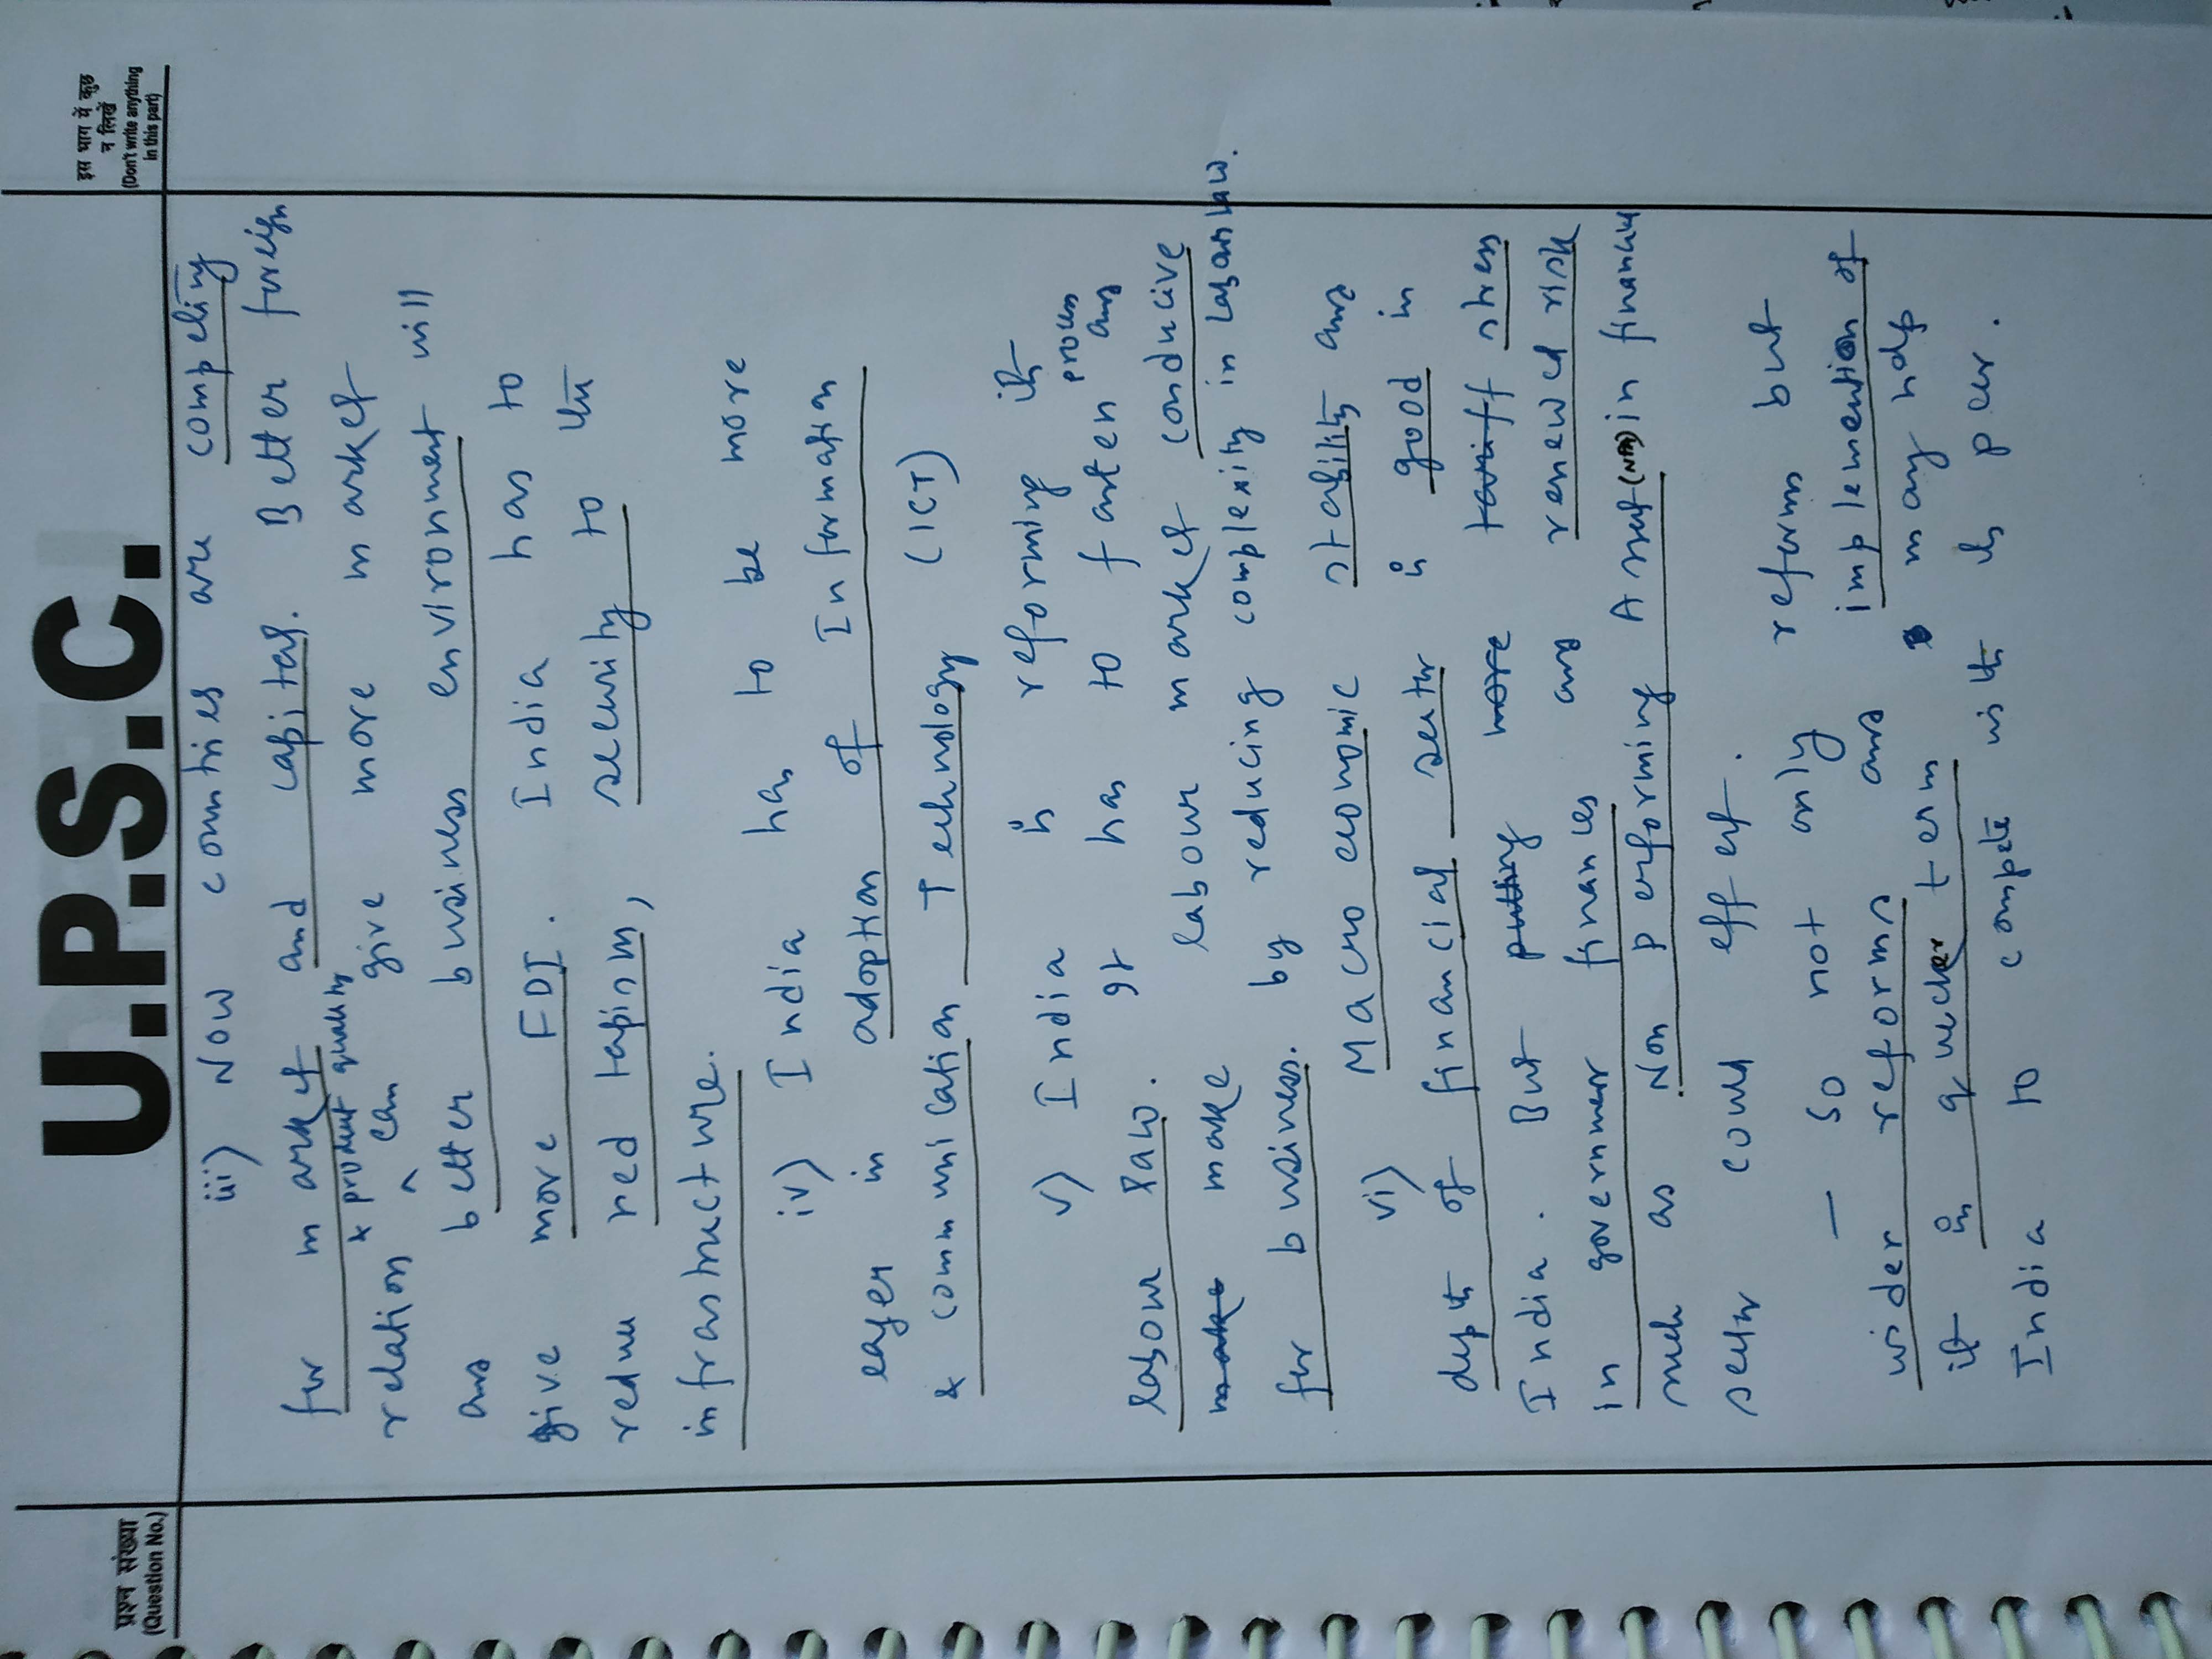 U.P.S.C.
प्रश्न संख्या
(Question No.)
इस भाग में कुछ
न लिखें
(Don't write anything
in this part)
iii) Now countries are competing
for market and capital. Better foreign
relation & product quality can give more market
and better business environment will
give more FDI. India has to
reduce red tapism, security to the
infrastructure.
iv) India has to be more
eager in adoption of Information
& communication Technology (ICT)
v) India is reforming its
labour law. It has to fasten process and
make make labour market conducive
for business. by reducing complexity in Labour law.
vi) Macro economic stability and
depth of financial sector is good in
India. But putting more tariff stress
in government finances and renewed risk
such as Non performing Asset (NPA) in financial
sector could effect.
— So not only reforms but
wider reforms and implemention of
it in quicker term may help
India to compete with its peer.